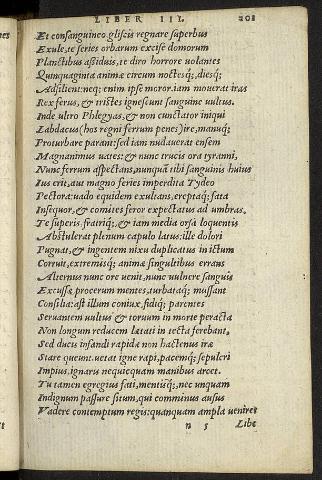 LIBER III. 201
Et consanguineo gliscis regnare superbus
Exule, te series orbarum excisa domorum
Planctibus assiduis, te diro horrore uolantes
Quinquaginta animæ circum noctesq;, diesq;
Adsilient: neq; enim ipse moror. iam mouerat iras
Rex ferus, & tristes ignescunt sanguine uultus.
Inde ultro Phlegyas, & non cunctator iniqui
Labdacus (hos regni ferrum penes) ire, manuq;
Proturbare parant: sed iam nudauerat ensem
Magnanimus uates: & nunc trucis ora tyranni,
Nunc ferrum aspectans, nunquā tibi sanguinis huius
Ius erit, aut magno feries imperdita Tydeo
Pectora: uado equidem exultans, ereptaq; fata
Insequor, & comites feror expectatus ad umbras.
Te superis, fratriq;, & iam media orsa loquentis
Abstulerat plenum capulo latus: ille dolori
Pugnat, & ingentem nixu duplicatus in ictum
Corruit, extremisq; animæ singultibus errans
Alternus nunc ore uenit, nunc uulnere sanguis
Excussæ procerum mentes, turbataq; mussant
Consilia: ast illum coniux, fidiq; parentes
Seruantem uultus & toruum in morte peracta
Non longum reducem lætati in tecta ferebant.
Sed ducis infandi rapidæ non hactenus iræ
Stare queunt. uetat igne rapi, pacemq; sepulcri
Impius, ignaris nequicquam manibus arcet.
Tu tamen egregius fati, mentisq;, nec unquam
Indignum passure situm, qui comminus ausus
Vadere contemptum regis: quanquam ampla ueniret
n 5 Libe